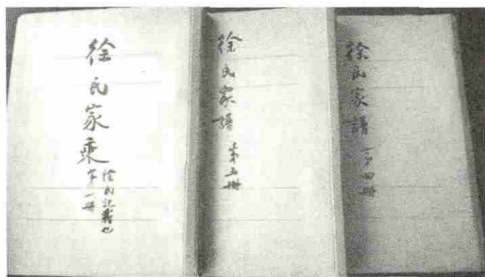 徐氏家乘
第一册
徐氏家譜
第五册
徐氏家譜
第四册